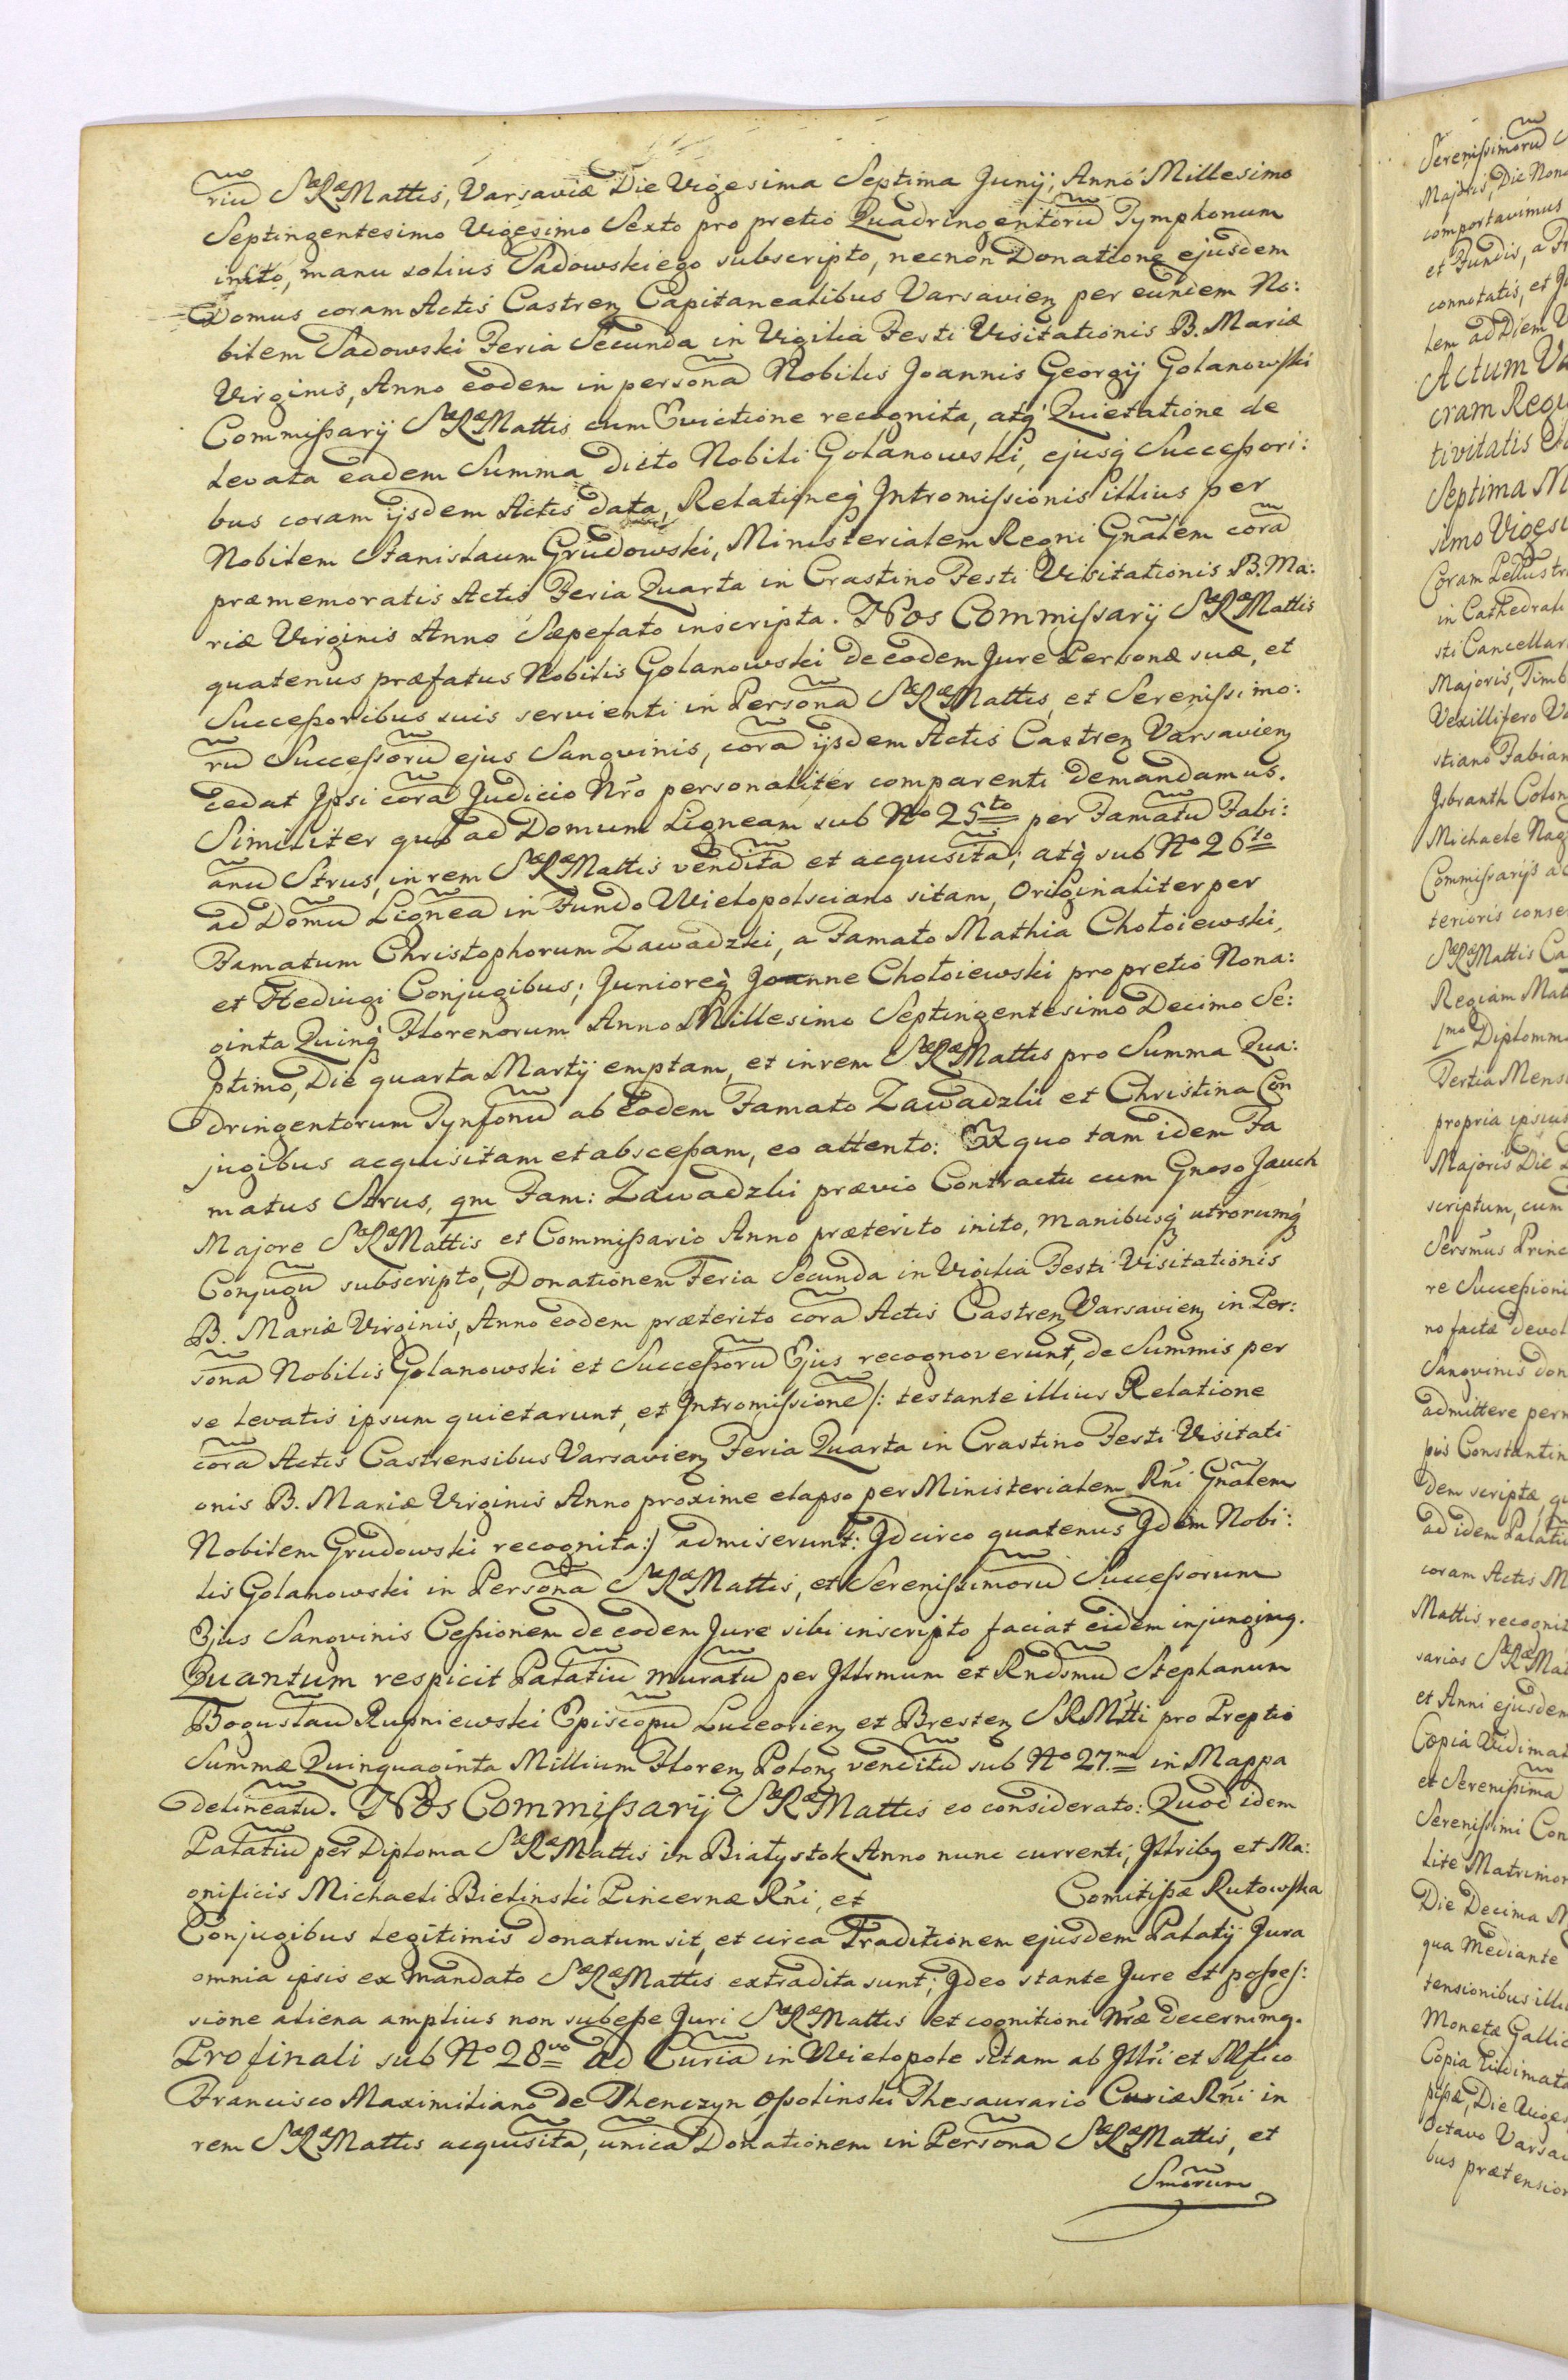 riu SæRæMattis, Varsaviæ Die Vigesima Septima Junij, Anno Millesimo
Septingentesimo Vigesimo Sexto pro pretio Quadringentoru Tymphonum
inito, manu solius Sadowskiego subscripto, necnon Donatione ejusdem
Domus coram Actis Castren Capitanealibus Varsavien per eundem No:
bilem Sadowski Feria Secunda in Vigilia Festi Visitationis B. Mariæ
Virginis, Anno eodem in persona Nobilis Joannis Georgij Golanowski
Commissarij SæRæMattis cum Evictione recognita, atq Quietatione de
levata eadem Summa dicto Nobili Golanowski, ejusq Successori:
bus coram ijsdem Actis data, Relationeq Intromissionis illius per
Nobilem Stanislaum Grudowski, Ministerialem Regni Gnalem cora
præmemoratis Actis Feria Quarta in Crastino Festi Visitationis B. Ma:
riæ Virginis Anno Sæpefato inscripta. Nos Commissarij SæRæMattis
quatenus præfatus Nobilis Golanowski de eodem Jure Personæ suæ, et
Successoribus suis servienti in Persona SæRæMattis, et Serenissimo:
ru Successoru ejus Sanguinis, cora ijsdem Actis Castren Varsavien
cedat Ipsi cora Judicio Nro personaliter comparenti demandamus.
Similiter quo ad Domum Ligneam sub No 25to per Famatu Fabi:
anu Strus, in rem SæRæMattis vendita et acquisita; atq sub No 26to
ad Domu Lignea in Fundo Wielopolsciano sitam, originaliter per
Famatum Christophorum Zawadzki, a Famato Mathia Chołoiewski,
et Hedvigi Conjugibus; Junioreq Joanne Chołoiewski pro pretio Nona:
ginta Quinq Florenorum Anno Millesimo Septingentesimo Decimo Se:
ptimo, Die quarta Martij emptam, et in rem SæRæMattis pro Summa Qua:
dringentorum Tynfonu ab eodem Famato Zawadzki et Christina Con
jugibus acquisitam et abscessam, eo attento: Ex quo tam idem Fa
matus Strus, qm Fam: Zawadzki prævio Contractu cum Gnoso Jauch
Majore SæRæMattis et Commissario Anno præterito inito, manibusq utrorumq
Conjugu subscripto, Donationem Feria Secunda in Vigilia Festi Visitationis
B. Mariæ Virginis, Anno eodem præterito cora Actis Castren Varsavien in Per:
sona Nobilis Golanowski et Successoru Ejus recognoverunt, de Summis per
se levatis ipsum quietarunt, et Intromissione /: testante illius Relatione
cora Actis Castrensibus Varsavien Feria Quarta in Crastino Festi Visitati
onis B. Mariæ Virginis Anno proxime elapso per Ministerialem Rni Gnalem
Nobilem Grudowski recognita:/ admiserunt: Idcirco quatenus Idem Nobi:
lis Golanowski in Persona SæRæMattis, et Serenissimoru Successorum
Ejus Sanguinis Cessionem de eodem Jure sibi inscripto faciat eidem injungimq.
Quantum respicit Palatiu muratu per Illrmum et Rndsmu Stephanum
Bogusłau Rupniewski Episcopu Luceorien et Bresten SRMtti pro Preptio
Summæ Quinquaginta Millium Floren Polon venditu sub No 27.mo in Mappa
delineatu. Nos Commissarij SæRæMattis eo considerato: Quod idem
Palatiu per Diploma SæRæMattis in Białystok Anno nunc currenti, Illribq et Ma:
gnificis Michaeli Bielinski Pincernæ Rni, et Comitissæ Rutowska
Conjugibus legitimis donatum sit, et circa Traditionem ejusdem Palatij Jura
omnia ipsis ex mandato SæRæMattis extradita sunt; Ideo stante Jure et posses:
sione aliena amplius non subesse Juri SæRæMattis et cognitioni Nræ decernimq.
Pro finali sub No 28vo ad Curia in Wielopole sitam ab Illri et Mfico
Francisco Maximiliano de Thenczyn Ossolinski Thesaurario Curiæ Rni in
rem SæRæMattis acquisita, unica Donationem in Persona SæRæMattis, et
Smorum
Serenissimoru
Majoris, Die Nona
comportavimus
et Fundis, a
connotatis, et
lem ad Diem
Actum Va
cram Regi
tivitatis
Septima M
simo Vigesi
Coram Illustr
in Cathedrali
sti Cancellar
Majoris, Timb
Vexillifero Va
stiano Fabian
Isbranth Colon
Michaele Nag
Commissarijs ac
terioris conse
SæRæMattis Ca
Regiam Mat
1mo Diplomma
Tertia Mensi
propria ipsius
Majoris Die
scriptum, cum
Sersmus Princ
re Successioni
no factæ devol
Sanguinis don
admittere perm
pis Constantin
dem scripta, qu
ad idem Palatiu
coram Actis M
Mattis recognit
sarios SæRæMat
et Anni ejusdem
Copia Vidimat
et Serenissima
Serenissimi Con
lite Matrimon
Die Decima
qua Mediante
tensionibus illi
Monetæ Gallic
Copia Vidimata
pissa, Die Viges
octavo Varsav
bus prætension